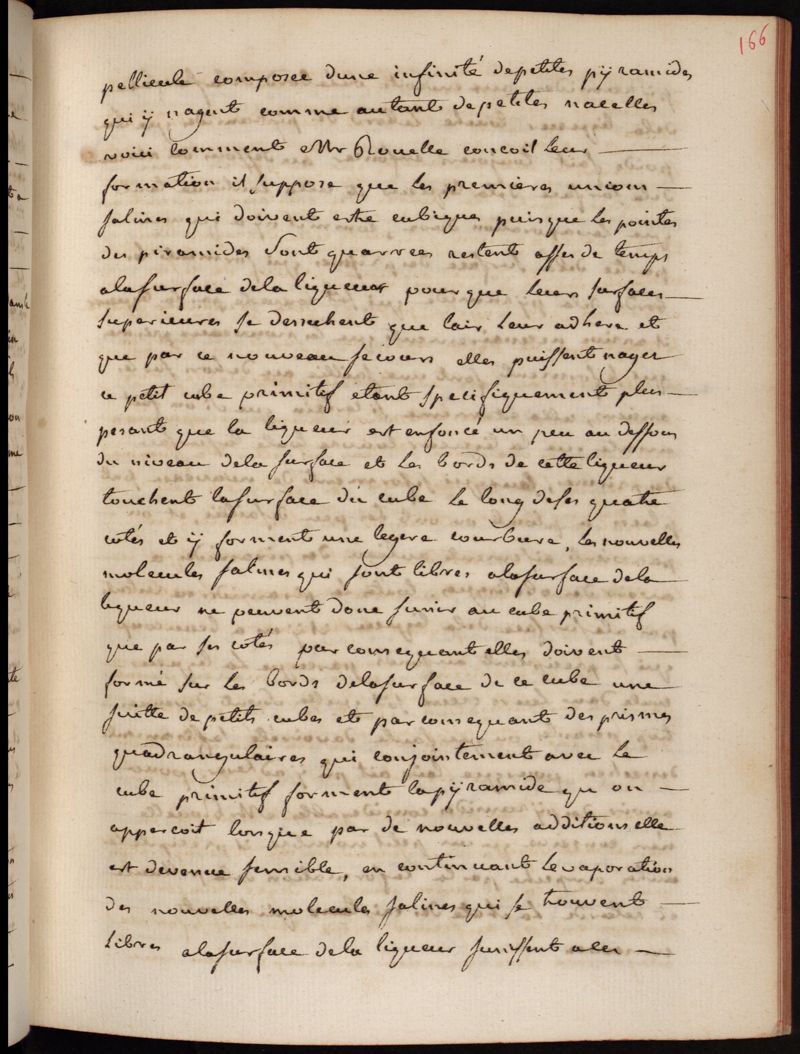 166
pellicule composee dune infinité depetites pÿramides
qui ÿ nagent comme autant depetites nacelles
voici comment Mr Rouelle concoit leur —
formation il suppose que les premieres unions —
salines qui doivent estre cubiques puisque les pointes
des piramides sont quarrées restent asses de temps
alasurface dela liqueur pour que leurs surfaces —
superieures se dessechent que lair leur adhere et
que par ce nouveau secours elles puissent nager
ce petit cube primitif etant specifiquement plus —
pesant que la liqueur est enfoncé un peu au dessous
du niveau dela surface et les bords de cette liqueur
touchent lasurface du cube le long deses quatre
cotés et ÿ forment une legere courbure, les nouvelles
molecules salines qui sont libres alasurface dela
liqueur ne peuvent donc sunir au cube primitif
que par ses cotés par consequant elles doivent —
formé sur les bords delasurface de ce cube une
suitte de petits cubes et par consequant des prismes
quadrangulaires qui conjointement avec le
cube primitif forment lapÿramide qu on —
appercoit lorsque par de nouvelles additions elle
est devenue sensible, en continuant levaporation
des nouvelles molecules salines qui se trouvent —
libres alasurface dela liqueur sunissent a ces —